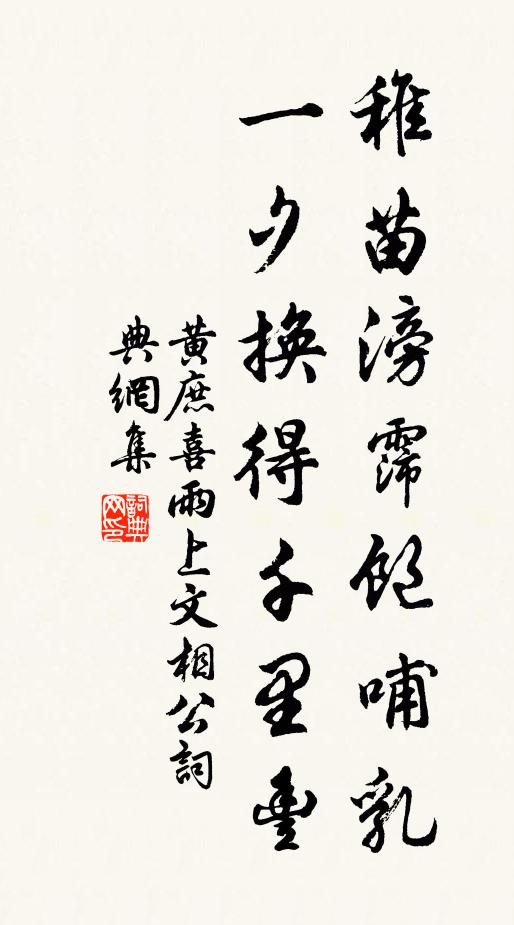 稚苗滂霈飽哺乳
一夕換得千里豐
黄庶喜雨上文相公詞
典網集
詞典網印